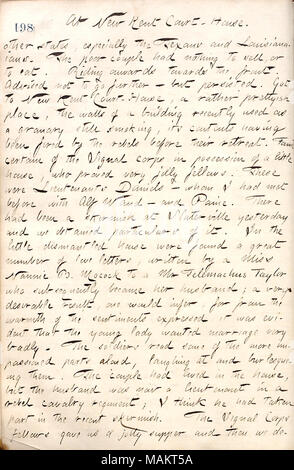 198
At New Kent Court-House.
other states, especially the Texans and Louisiana-
ians. The poor couple had nothing to sell, or
to eat. Riding onwards towards the front,
Advised not to go further — but persisted, got
to New Kent Court-House, a rather prettyish
place, the walls of a building recently used as
a granary still smoking, its contents having
been fired by the rebels before their retreat. Found
certain of the Signal corps in possession of a little
house, who proved very jolly fellows. These
were Lieutenants Daniels — whom I had met
before with Alf Waud — and Paine. There
had been a skirmish at Slaterville yesterday
and we obtained particulars of it. In the
little dismantled house were found a great
number of love letters, written by a Miss
Nannie B. Mocock to a Mr Telemachus Taylor
who subsequently became her husband; a very
desirable result, one would infer, for from the
warmth of the sentiments expressed it was evi-
dent that the young lady wanted marriage very
badly. The soldiers read some of the more im-
passioned parts aloud, laughing at and burlesqu-
ing them. The couple had lived in the house,
but the husband was now a lieutenant in a
rebel cavalry regiment; I think he had taken
part in the recent skirmish. The Signal Corps
fellows gave us a jolly supper and then we do-
alamy
Image ID: MAKT5A
www.alamy.com